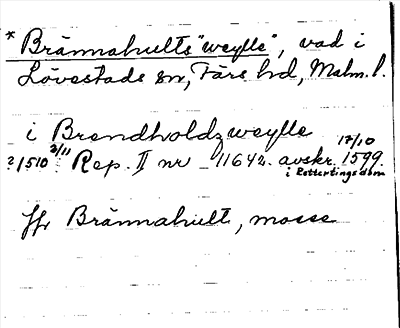 * Brännahults "weylle", vad i
Lövestads sn, Färs hd, Malm. l.
i Brendholdz weylle
?1510 3/11 Rep. II nr 11642. avskr. 17/10 1599.
i Rettertingsdom
Jfr Brännahult, mosse